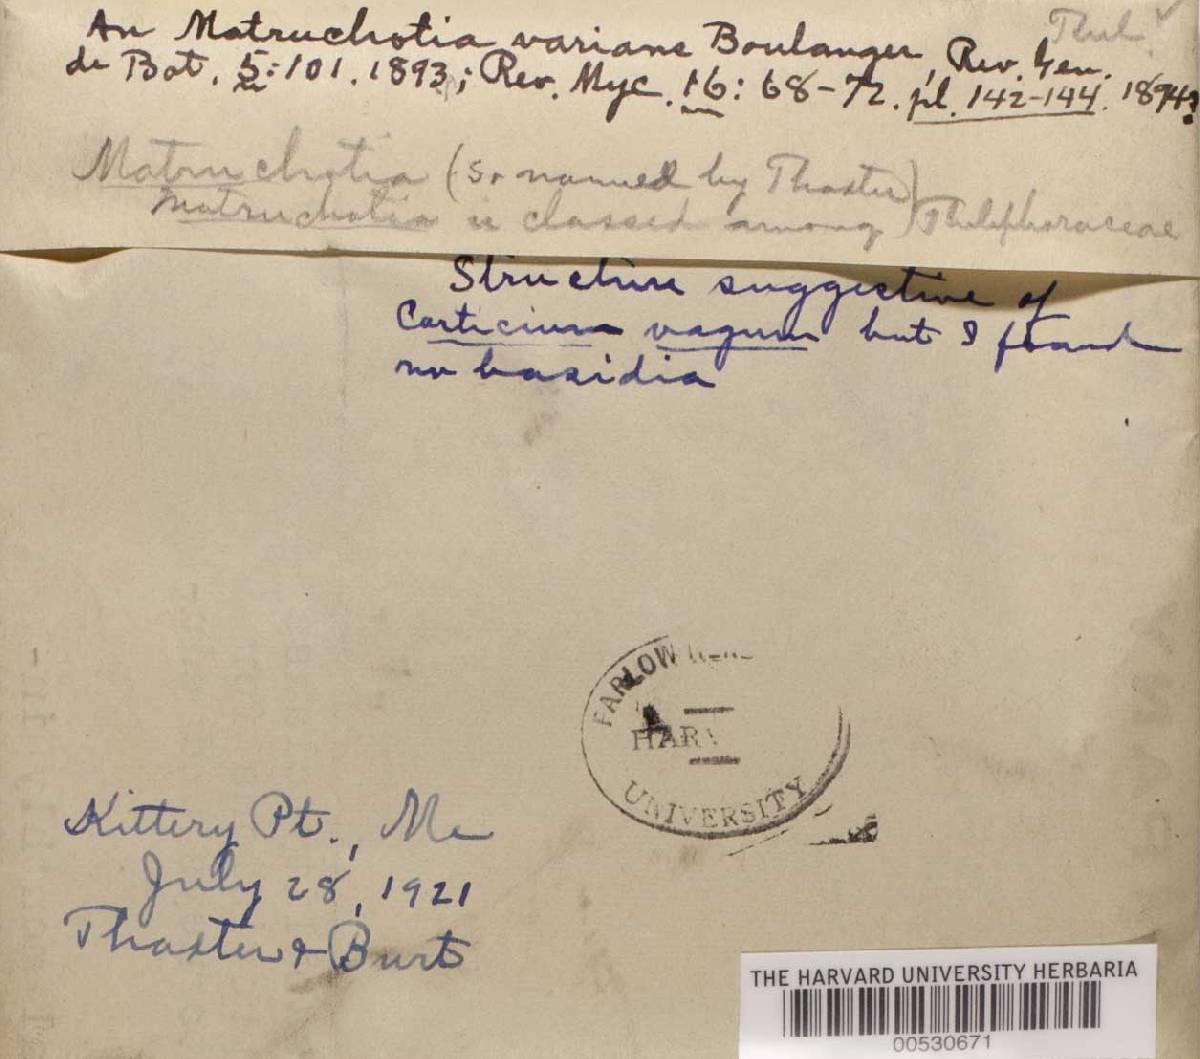 Thel.
An Matruchotia varians Boulanger, Rev. Gen.
de Bot. 5:101. 1893; Rev. Myc. 16: 68-72. pl. 142-144. 1894?
Matruchotia (so named by Thaxter)
Matruchotia is classed among Thelephoraceae
Structure suggestive of
Corticium vagum but I found
no basidia
FARLOW
HARV
UNIVERSITY
Kittery Pt., Me
July 28, 1921
Thaxter & Burt
THE HARVARD UNIVERSITY HERBARIA
00530671